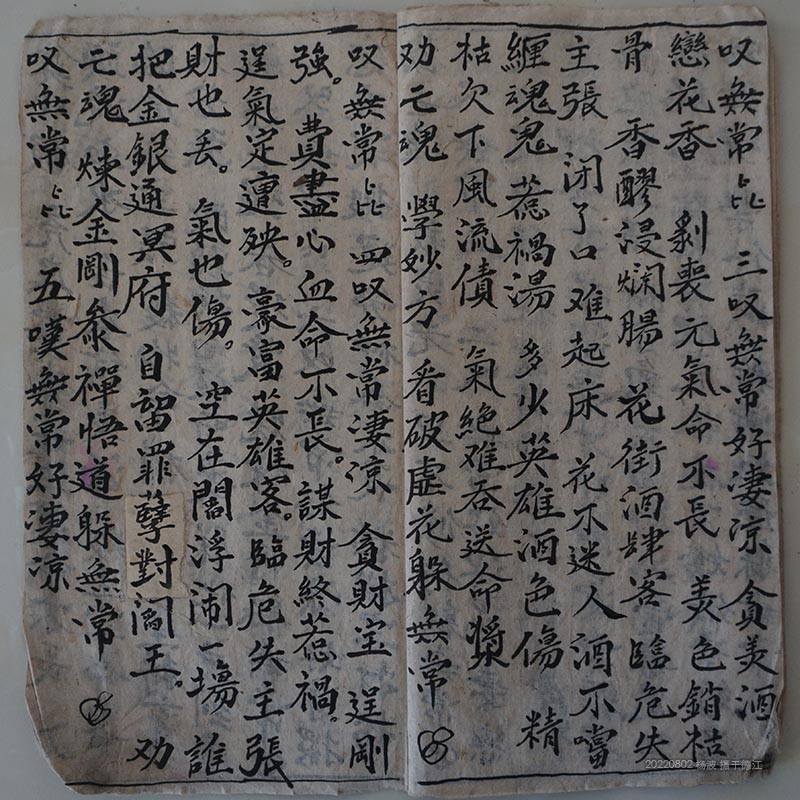 叹無常㐂　三叹無常好凄凉　貪美酒
戀花香　剝喪元氣命不長　美色銷枯
骨　香醪浸爛腸　花街酒肆客　臨危失
主張　闭了口难起床　花不迷人酒不噹
纏魂鬼　惹禍湯　多少英雄酒色傷　精
枯欠下風流債　氣絶难吞送命漿
劝亡魂　學妙方　看破虛花躲無常
叹無常㐂　四叹無常凄凉　貪財宝　逞剛
強。費盡心血命不長。謀財終惹禍。
逞氣定遭殃。豪富英雄客。臨危失主張
財也丢。氣也傷。空在閻浮闹一場　誰
把金銀通冥府　自留罪孽對阎王。　劝
亡魂　煉金剛　参禪悟道躲無常
叹無常㐂　五嘆無常好凄凉
20220802 杨波 摄于德江